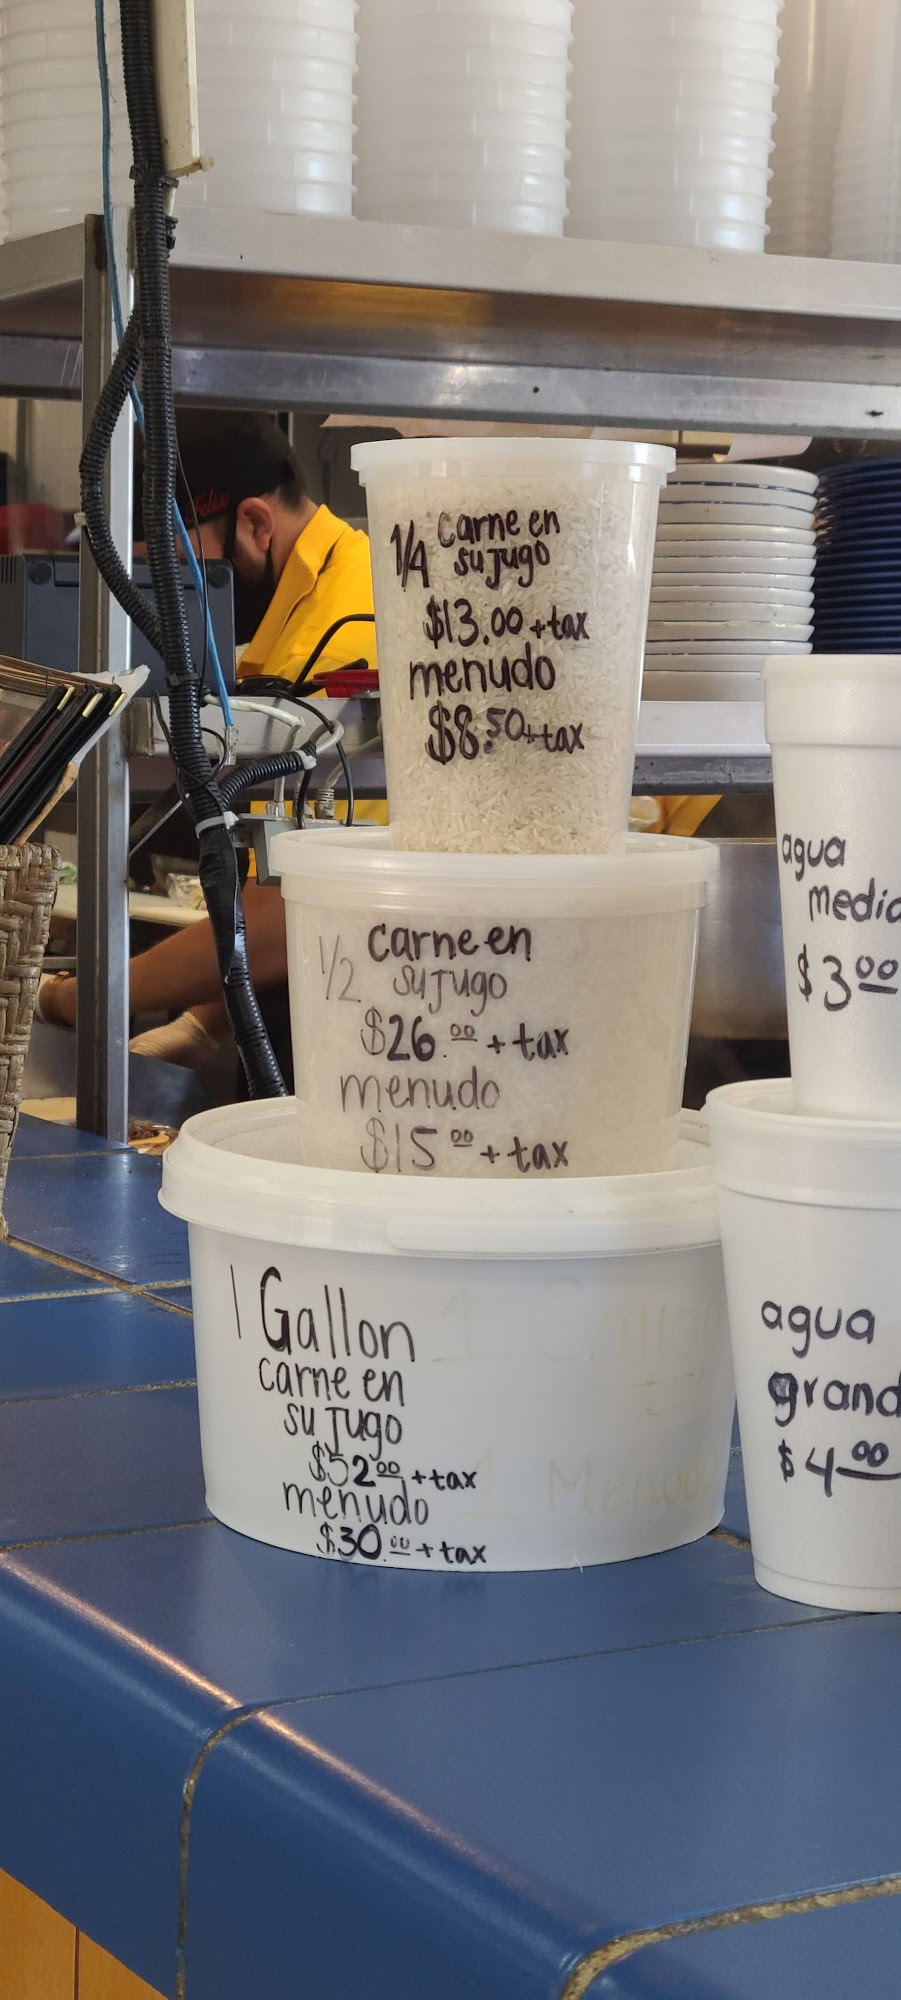 Felix
1/4 carne en
su jugo
$13.00 + tax
menudo
$8.50 + tax
1/2 carne en
su jugo
$26.00 + tax
menudo
$15.00 + tax
1 Gallon
carne en
su jugo
$52.00 + tax
menudo
$30.00 + tax
1 Gallon
1 Menudo
agua
media
$3.00
agua
grand
$4.00